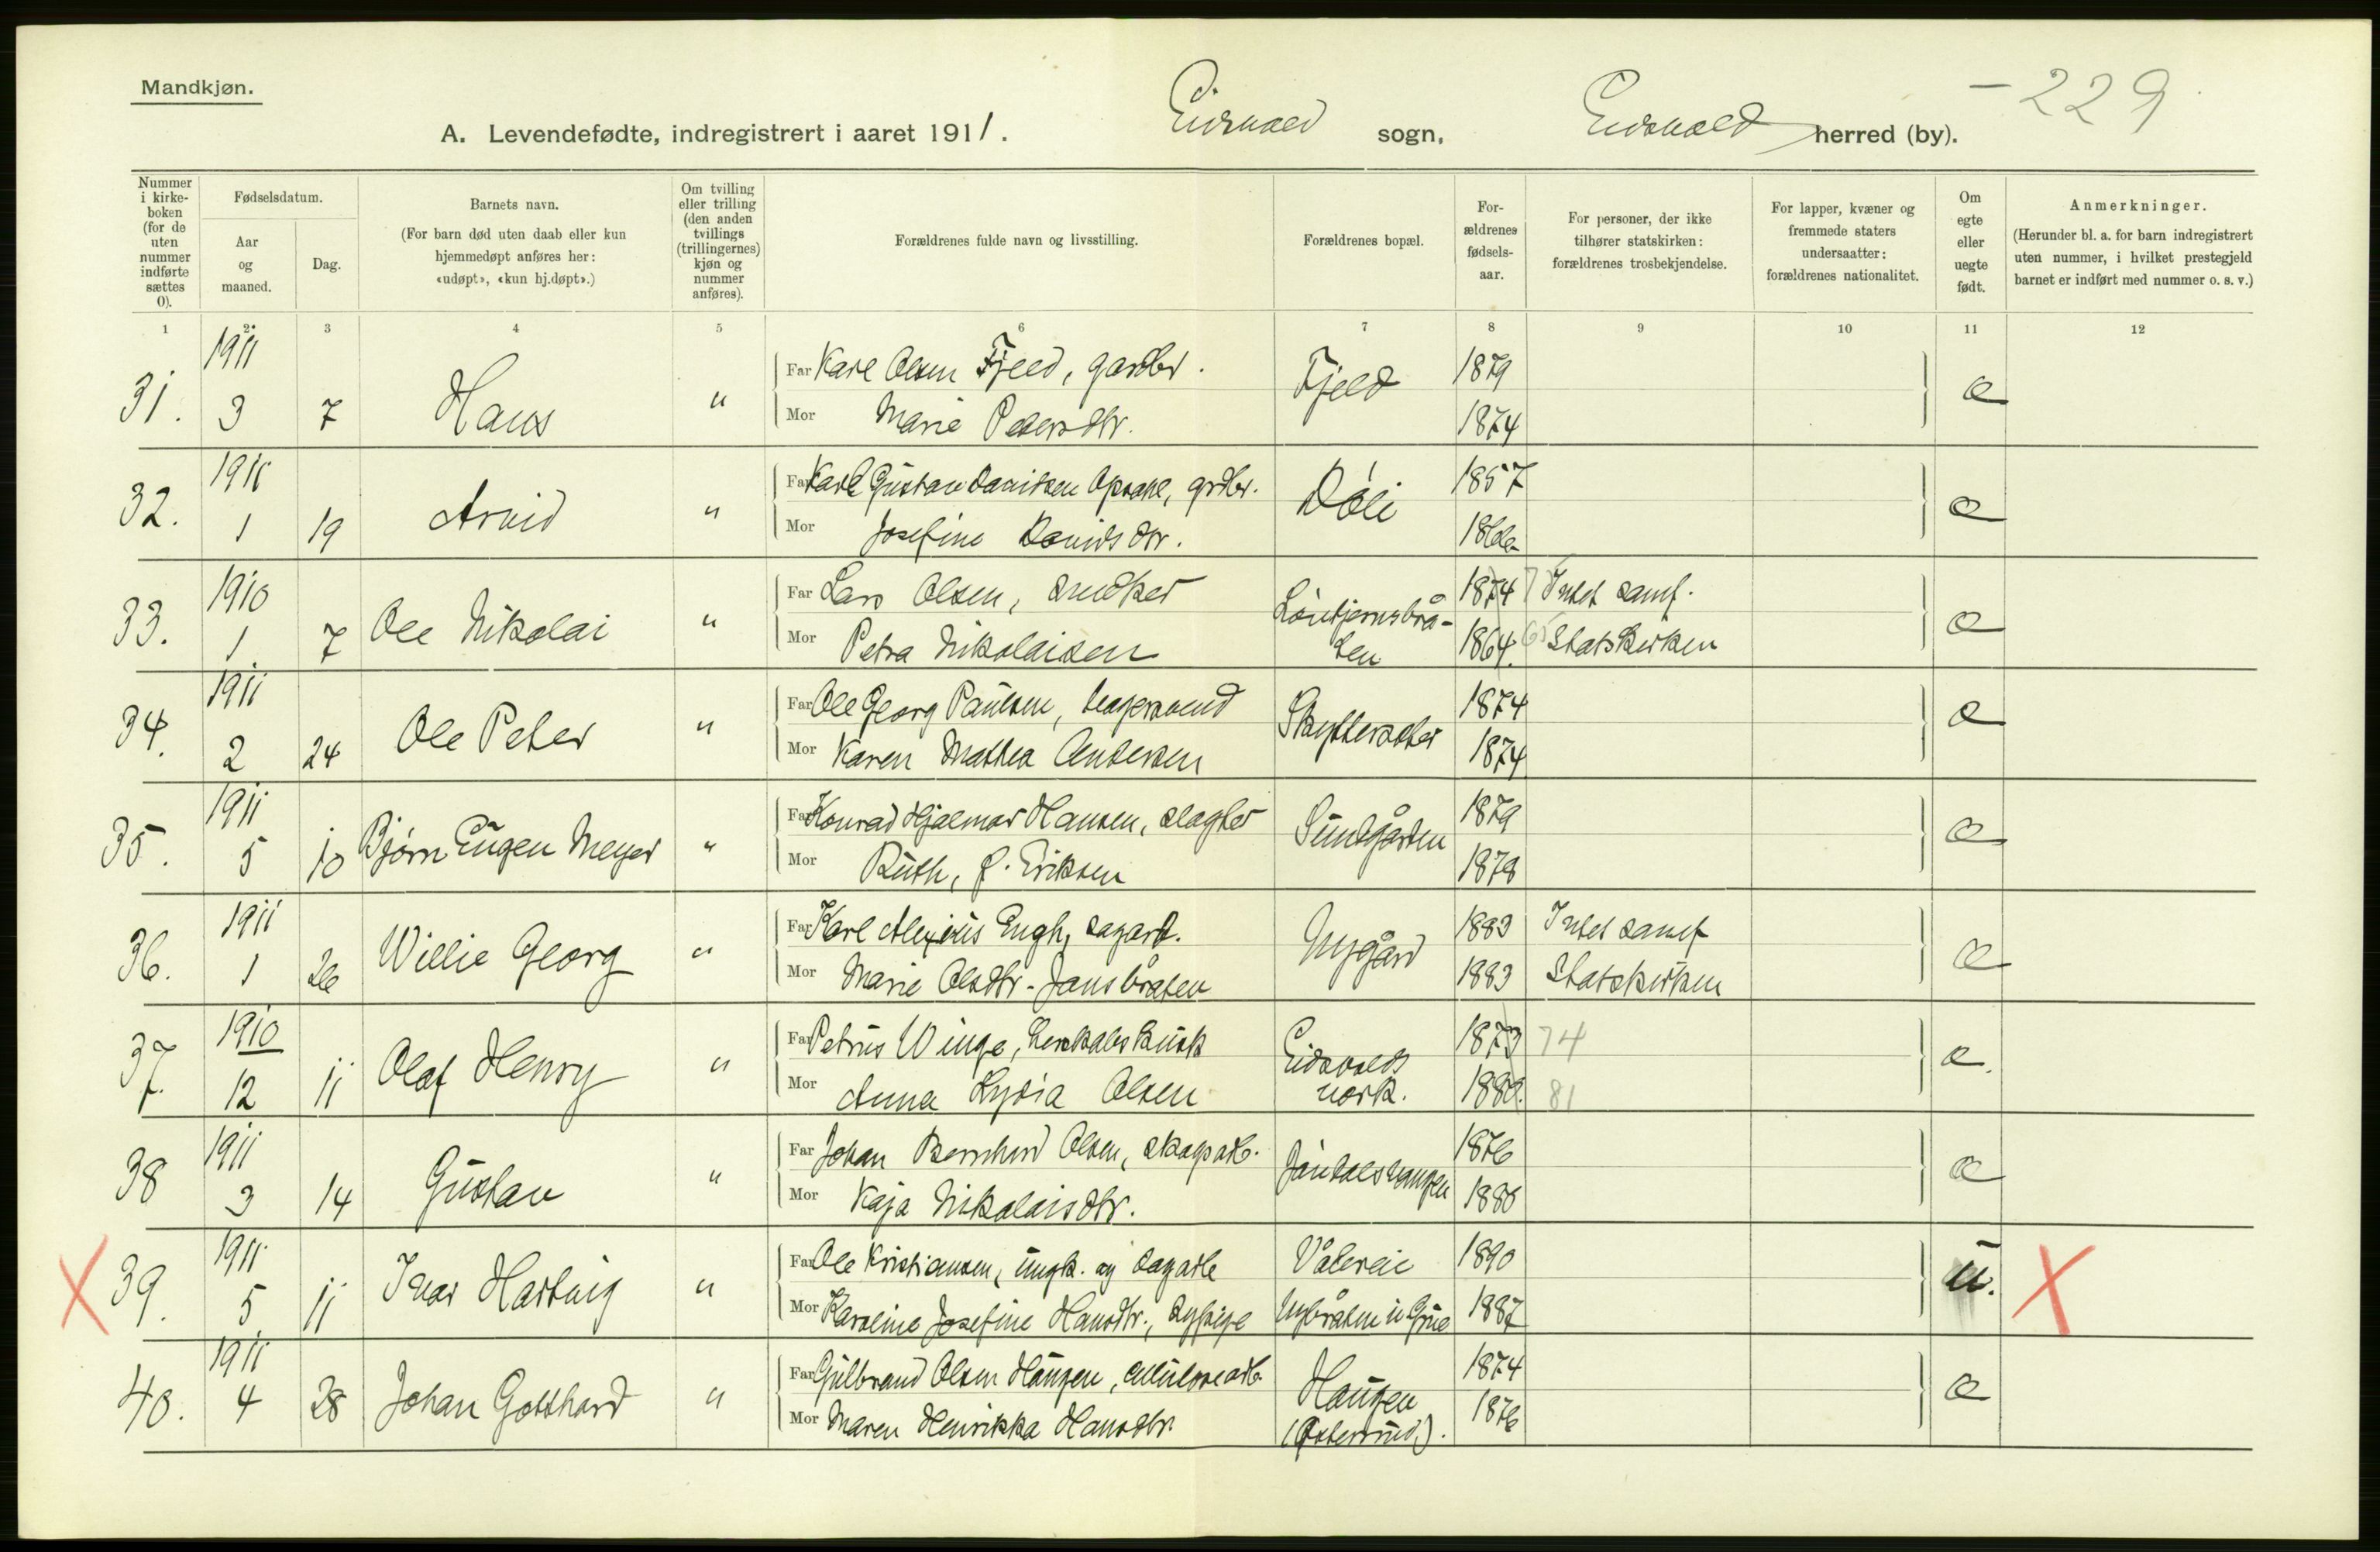 Mandkjøn.
- 229
A. Levendefødte, indregistrert i aaret 1911. Eidsvold sogn, Eidsvold herred (by).
Nummer i kirke-boken (for de uten nummer indførte sættes 0).
Fødselsdatum.
Aar og maaned.
Dag.
Barnets navn.
(For barn død uten daab eller kun hjemmedøpt anføres her: «udøpt», «kun hj.døpt».)
Om tvilling eller trilling (den anden tvillings (trillingernes) kjøn og nummer anføres).
Forældrenes fulde navn og livsstilling.
Forældrenes bopæl.
For-ældrenes fødsels-aar.
For personer, der ikke tilhører statskirken: forældrenes trosbekjendelse.
For lapper, kvæner og fremmede staters undersaatter: forældrenes nationalitet.
Om egte eller uegte født.
Anmerkninger.
(Herunder bl. a. for barn indregistrert uten nummer, i hvilket prestegjeld barnet er indført med nummer o. s. v.)
1 2 3 4 5 6 7 8 9 10 11 12
31. 1911 3 7 Hans " Far Karl Olsen Fjeld, gardbr. Fjeld 1879 e
Mor Marie Petersdtr. 1874
32. 1911 1 19 Arvid " Far Karl Gustav Davidsen, grdbr. Døli 1857 e
Mor Josefine Davidsdtr.
33. 1910 1 7 Ole Nikolai " Far Lars Olsen, snedker Løntjernsbrå- 1874 Intet samf. e
Mor Petra Nikolaisen ten 1864. 65 Statskirken
34. 1911 2 24 Ole Peter " Far Ole Georg Paulsen, Skyttersæter 1874 e
Mor Karen Mathea Andersen 1874
35. 1911 5 10 Bjørn Eugen Meyer " Far Konrad Hjalmar Hansen, slagter Sundgården 1879 e
Mor Ruth, f. Eriksen 1878
36. 1911 1 26 Willie Georg " Far Karl Alexius Engh, sagarb. Nygård 1883 Intet samf e
Mor Marie Olsdtr. Jansbråten 1883 Statskirken
37. 1910 12 11 Olaf Henry " Far Petrus Winge, herskabskusk Eidsvolds 1873 74 e.
Mor Anna Lydia Olsen verk. 1880. 81
38 1911 3 14 Gustav " Far Johan Bernhard Olsen, skogsarb. Jøndalsvangen 1876 e
Mor Kaja Nikolaisdtr. 1880
X 39. 1911 5 11 Ivar Hartvig " Far Ole Kristiansen, ungk. og sagarb Våleveie 1890 u. X
Mor Karoline Josefine Hansdtr., sypige Nybråten i Grue 1887
40. 1911 4 28 Johan Gotthard " Far Gulbrand Olsen Haugen, cellulosearb. Haugen 1874 e
Mor Maren Henrikka Hansdtr. (Østerrud.). 1876